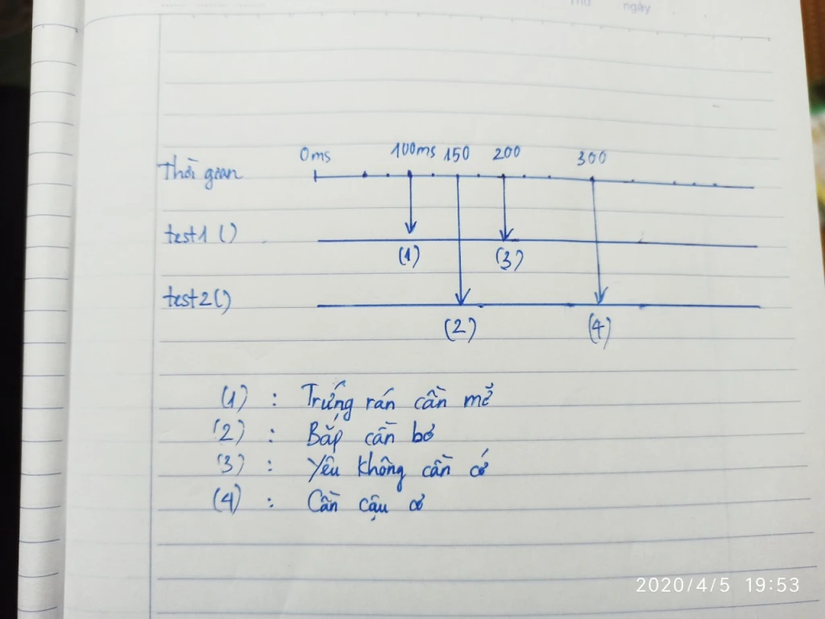 ngày
0ms 100ms 150 200 300
Thời gian
test1 ()
(1) (3)
test2()
(2) (4)
(1) : Trứng rán cần mỡ
(2) : Bắp cần bơ
(3) : Yêu không cần cớ
(4) : Cần cậu cơ
2020/4/5 19:53